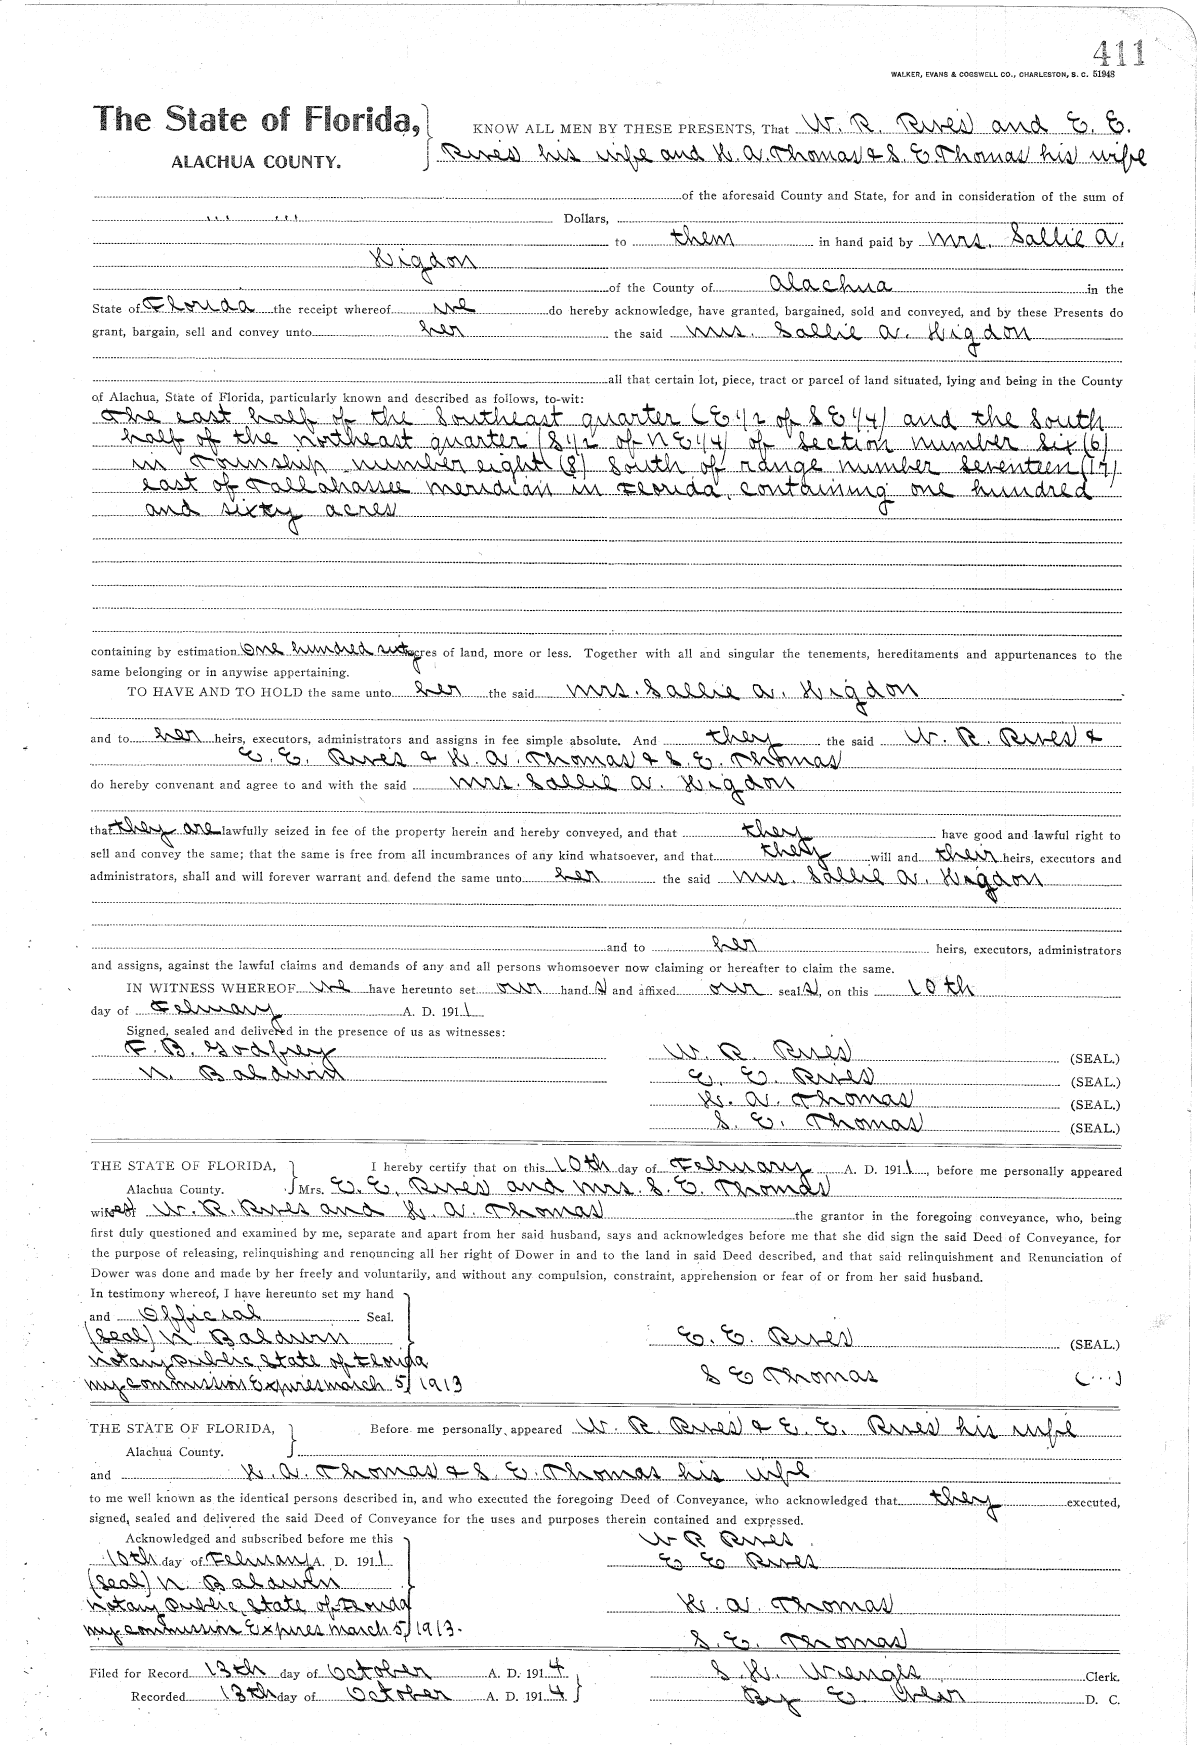 411
WALKER, EVANS & COGSWELL CO., CHARLESTON, S. C. 51948
The State of Florida, KNOW ALL MEN BY THESE PRESENTS, That W. R. Rives and E. E.
ALACHUA COUNTY. Rives his wife and H. A. Thomas & S. E Thomas his wife
of the aforesaid County and State, for and in consideration of the sum of
... ... Dollars,
to them in hand paid by Mrs. Sallie A.
Higdon
of the County of Alachua in the
State of Florida the receipt whereof we do hereby acknowledge, have granted, bargained, sold and conveyed, and by these Presents do
grant, bargain, sell and convey unto her the said Mrs. Sallie A. Higdon
all that certain lot, piece, tract or parcel of land situated, lying and being in the County
of Alachua, State of Florida, particularly known and described as follows, to-wit:
The east half of the Southeast quarter (E 1/2 of S E 1/4) and the South
half of the northeast quarter (S 1/2 of N E 1/4) of section number six (6)
in Township number eight (8) South of range number seventeen (17)
east of Tallahassee meridian in Florida, containing one hundred
and sixty acres
containing by estimation One hundred sixty acres of land, more or less. Together with all and singular the tenements, hereditaments and appurtenances to the
same belonging or in anywise appertaining.
TO HAVE AND TO HOLD the same unto her the said Mrs. Sallie A. Higdon
and to her heirs, executors, administrators and assigns in fee simple absolute. And they the said W. R. Rives &
E. E. Rives & H. A. Thomas & S. E. Thomas
do hereby convenant and agree to and with the said Mrs. Sallie A. Higdon
that they are lawfully seized in fee of the property herein and hereby conveyed, and that they have good and lawful right to
sell and convey the same; that the same is free from all incumbrances of any kind whatsoever, and that they will and their heirs, executors and
administrators, shall and will forever warrant and defend the same unto her the said Mrs. Sallie A. Higdon
and to her heirs, executors, administrators
and assigns, against the lawful claims and demands of any and all persons whomsoever now claiming or hereafter to claim the same.
IN WITNESS WHEREOF we have hereunto set our hand s and affixed our seal s, on this 10th
day of February A. D. 1911
Signed, sealed and delivered in the presence of us as witnesses:
F. B. Godfrey W. R. Rives (SEAL.)
N. Baldwin E. E. Rives (SEAL.)
H. A. Thomas (SEAL.)
S. E. Thomas (SEAL.)
THE STATE OF FLORIDA, I hereby certify that on this 10th day of February A. D. 1911, before me personally appeared
Alachua County. Mrs. E. E. Rives and Mrs. S. E. Thomas
wives of W. R. Rives and H. A. Thomas the grantor in the foregoing conveyance, who, being
first duly questioned and examined by me, separate and apart from her said husband, says and acknowledges before me that she did sign the said Deed of Conveyance, for
the purpose of releasing, relinquishing and renouncing all her right of Dower in and to the land in said Deed described, and that said relinquishment and Renunciation of
Dower was done and made by her freely and voluntarily, and without any compulsion, constraint, apprehension or fear of or from her said husband.
In testimony whereof, I have hereunto set my hand
and Official Seal.
(Seal) N. Baldwin E. E. Rives (SEAL.)
Notary Public, State of Florida
My Commission Expires March 5/1913 S E Thomas (...)
THE STATE OF FLORIDA, Before me personally appeared W. R. Rives & E. E. Rives his wife
Alachua County.
and H. A. Thomas & S. E. Thomas his wife
to me well known as the identical persons described in, and who executed the foregoing Deed of Conveyance, who acknowledged that they executed,
signed, sealed and delivered the said Deed of Conveyance for the uses and purposes therein contained and expressed.
Acknowledged and subscribed before me this W R Rives
10th day of February A. D. 1911 E E Rives
(Seal) N. Baldwin
Notary Public, State of Florida H. A. Thomas
My Commission Expires March 5/1913. S. E. Thomas
Filed for Record 13th day of October A. D. 1914 S. H. Wienges Clerk.
Recorded 13th day of October A. D. 1914 By E. Weir D. C.